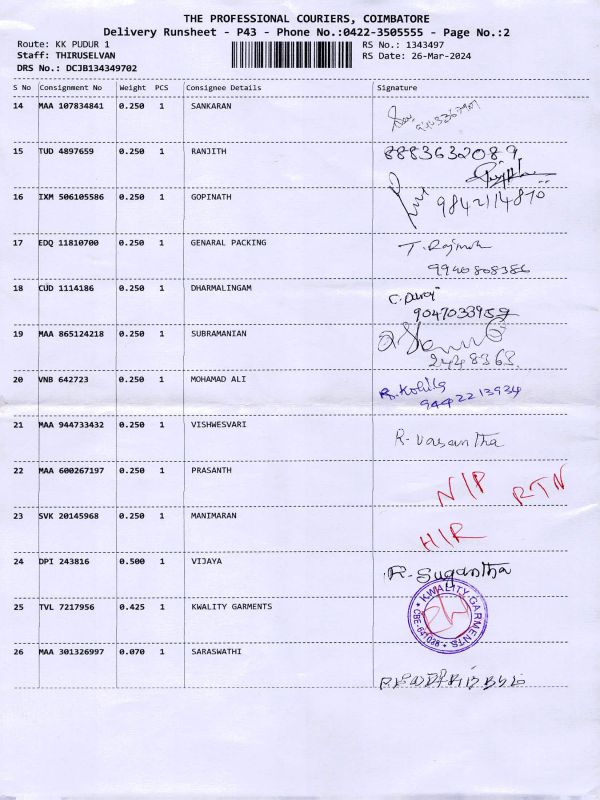 THE PROFESSIONAL COURIERS, COIMBATORE
Delivery Runsheet - P43 - Phone No.:0422-3505555 - Page No.:2
Route: KK PUDUR 1 RS No.: 1343497
Staff: THIRUSELVAN RS Date: 26-Mar-2024
DRS No.: DCJB134349702
S No Consignment No Weight PCS Consignee Details Signature
14 MAA 107834841 0.250 1 SANKARAN
15 TUD 4897659 0.250 1 RANJITH 8883632089
16 IXM 506105586 0.250 1 GOPINATH 9842114870
17 EDQ 11810700 0.250 1 GENARAL PACKING
9940808386
18 CUD 1114186 0.250 1 DHARMALINGAM
19 MAA 865124218 0.250 1 SUBRAMANIAN
2448363
20 VNB 642723 0.250 1 MOHAMAD ALI R. Kokila
9442213934
21 MAA 944733432 0.250 1 VISHWESVARI R. Vasantha
22 MAA 600267197 0.250 1 PRASANTH N/P RTN
23 SVK 20145968 0.250 1 MANIMARAN H/R
24 DPI 243816 0.500 1 VIJAYA R. Sugantha
25 TVL 7217956 0.425 1 KWALITY GARMENTS KWALITY GARMENTS
CBE-641038
26 MAA 301326997 0.070 1 SARASWATHI